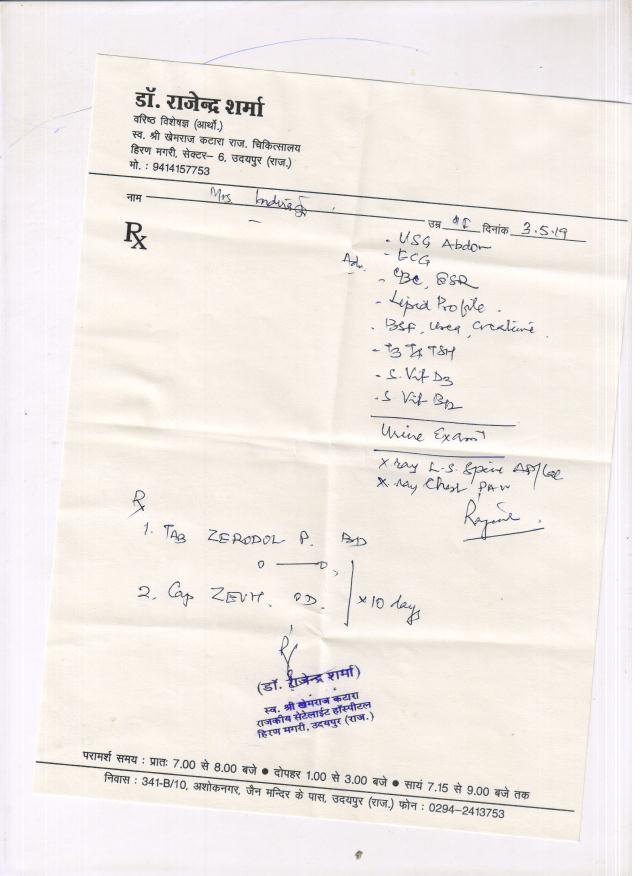 डॉ. राजेन्द्र शर्मा
वरिष्ठ विशेषज्ञ (आर्थो.)
स्व. श्री खेमराज कटारा राज. चिकित्सालय
हिरण मगरी, सेक्टर– 6, उदयपुर (राज.)
मो. : 9414157753
नाम Mrs
उम्र दिनांक 3.5.19
Rx
Adv. - USG Abdom
- ECG
- CBC, ESR
- Lipid Profile.
- BSF, Urea, Creatine.
- T3 T4 TSH
- S. Vit D3
- S. Vit B12
Urine Exam
X ray L.S. Spine AP/Lat
X. ray Chest PA
Rx
1. TAB ZERODOL P. BD
0 — 0,
2. Cap OD. × 10 days
(डॉ. राजेन्द्र शर्मा)
स्व. श्री खेमराज कटारा
राजकीय सेटेलाईट हॉस्पीटल
हिरण मगरी, उदयपुर (राज.)
परामर्श समय : प्रातः 7.00 से 8.00 बजे ● दोपहर 1.00 से 3.00 बजे ● सायं 7.15 से 9.00 बजे तक
निवास : 341-B/10, अशोकनगर, जैन मन्दिर के पास, उदयपुर (राज.) फोन : 0294-2413753